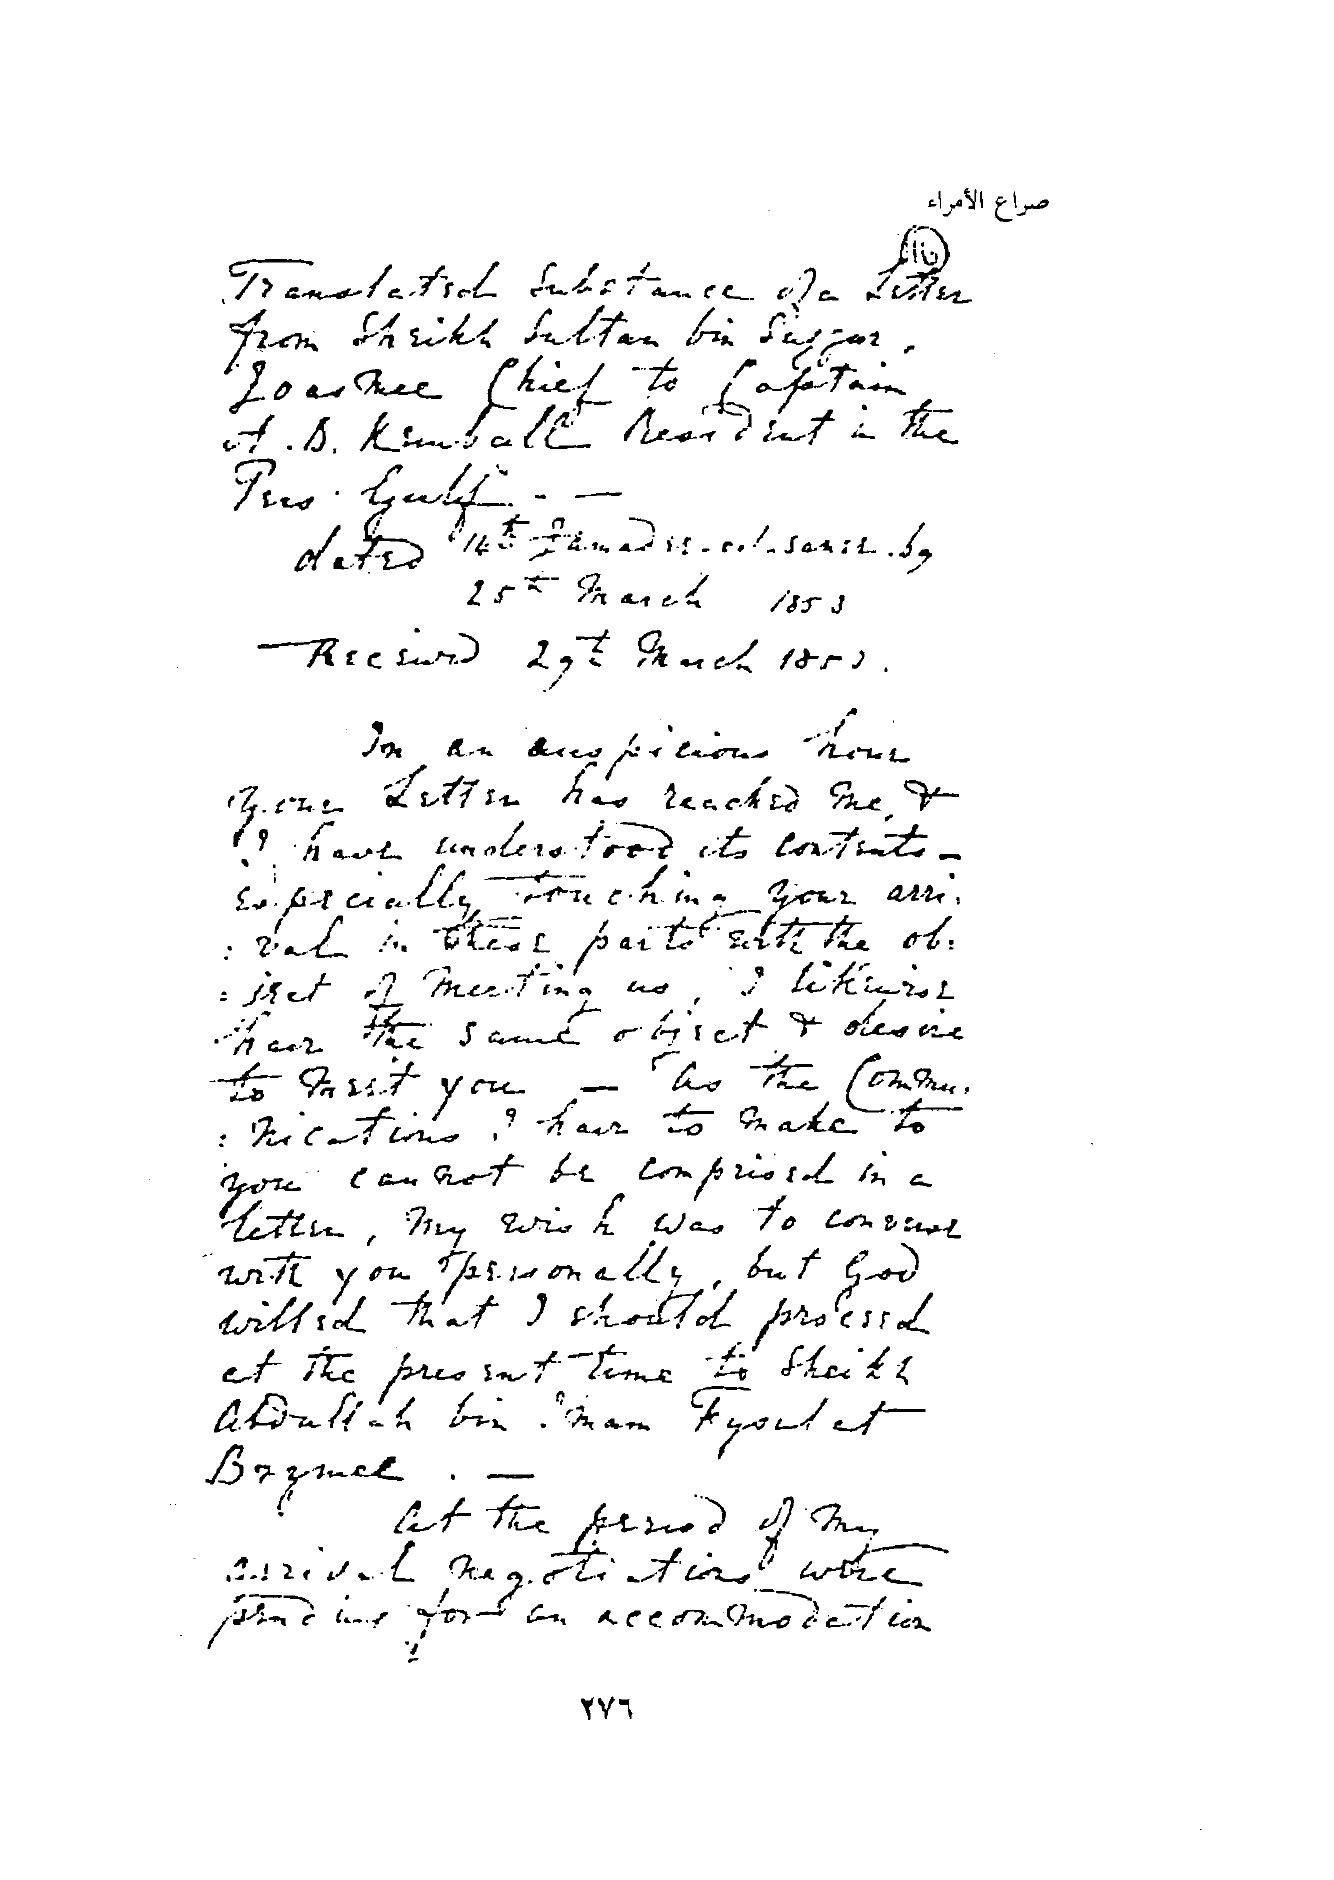 صراع الأمراء
Translated Substance of a Letter
from Sheikh Sultan bin Suggur,
Joasmee Chief to Captain
A. B. Kemball Resident in the
Pers. Gulf. - —
dated 14th Jamadee-ool-sanee. by
25th March 1853
— Received 29th March 1853.
In an auspicious hour
your Letter has reached me, &
I have understood its contents -
especially touching your arri-
:val in these parts with the ob:
:ject of meeting us, I likewise
have the same object & desire
to meet you — As the Commu.
:nications I have to make to
you cannot be comprised in a
letter, my wish was to converse
with you personally, but God
willed that I should proceed
at the present time to Sheikh
Abdullah bin Imam Fysul at
Brymee. —
At the period of my
arrival negotiations were
pending for an accommodation
٢٧٦